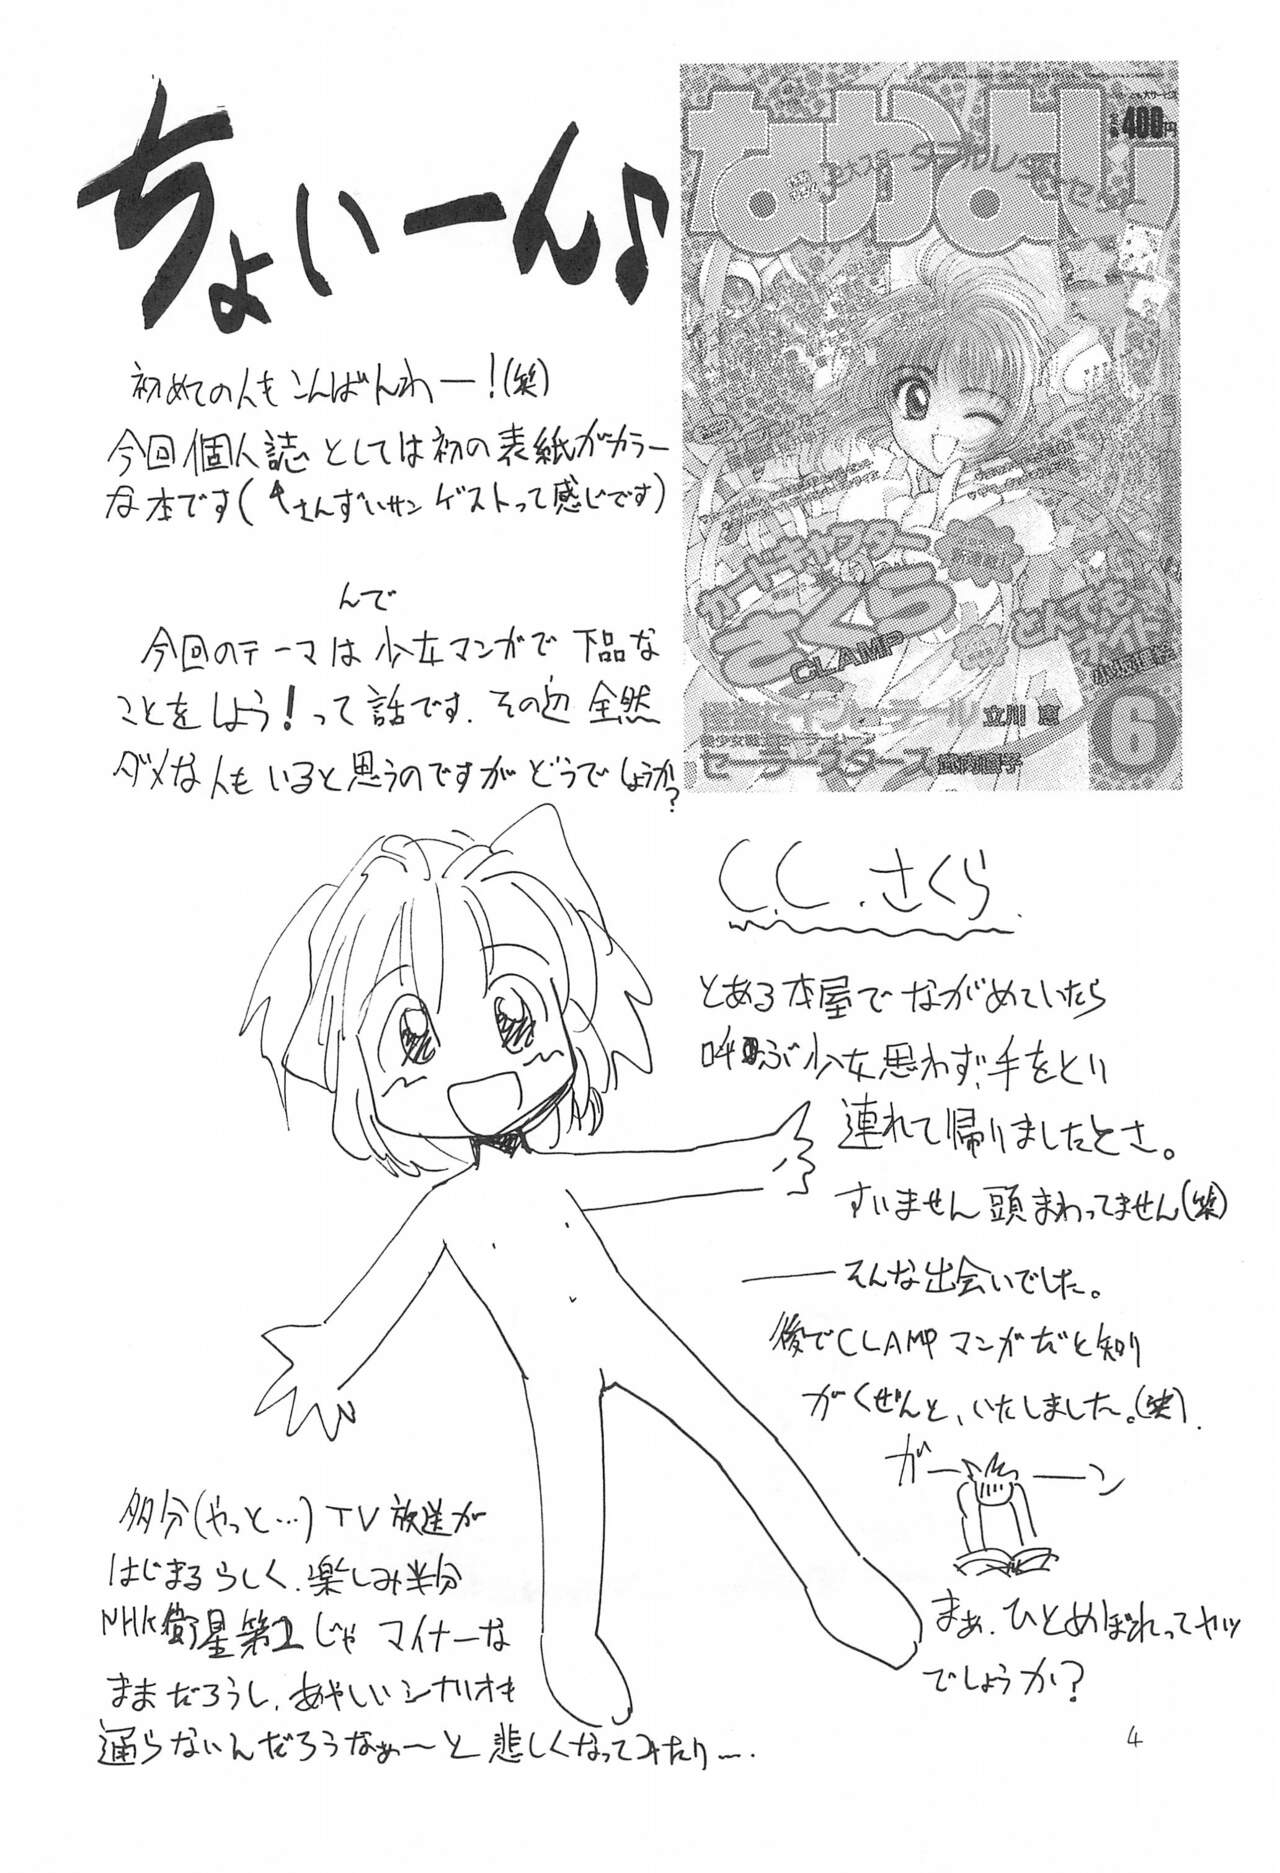 ちょいーん♪
初めての人もこんばんわー!(笑)
今回個人誌としては初の表紙がカラー
な本です(さんずいサンゲストって感じです)
んで
今回のテーマは少女マンガで下品な
ことをしよう!って話です.その辺全然
ダメな人もいると思うのですがどうでしょうか?
なかよし
400円
カードキャプター
さくら
CLAMP
とんでもナイト
小坂理絵
立川恵
セーラースターズ 武内直子
6
C.C.さくら.
とある本屋でながめていたら
呼ぶ少女思わず、手をとり
連れて帰りましたとさ。
すいません頭まわってません(笑)
――そんな出会いでした。
後でCLAMPマンガだと知り
がくぜんと、いたしました。(笑).
ガー――ン
まぁ.ひとめぼれってヤツ
でしょうか?
多分(やっと…)TV放送が
はじまるらしく.楽しみ半分
NHK衛星第2じゃマイナーな
ままだろうし.あやしいシナリオも
通らないんだろうなぁ〜と悲しくなってみたり….
4